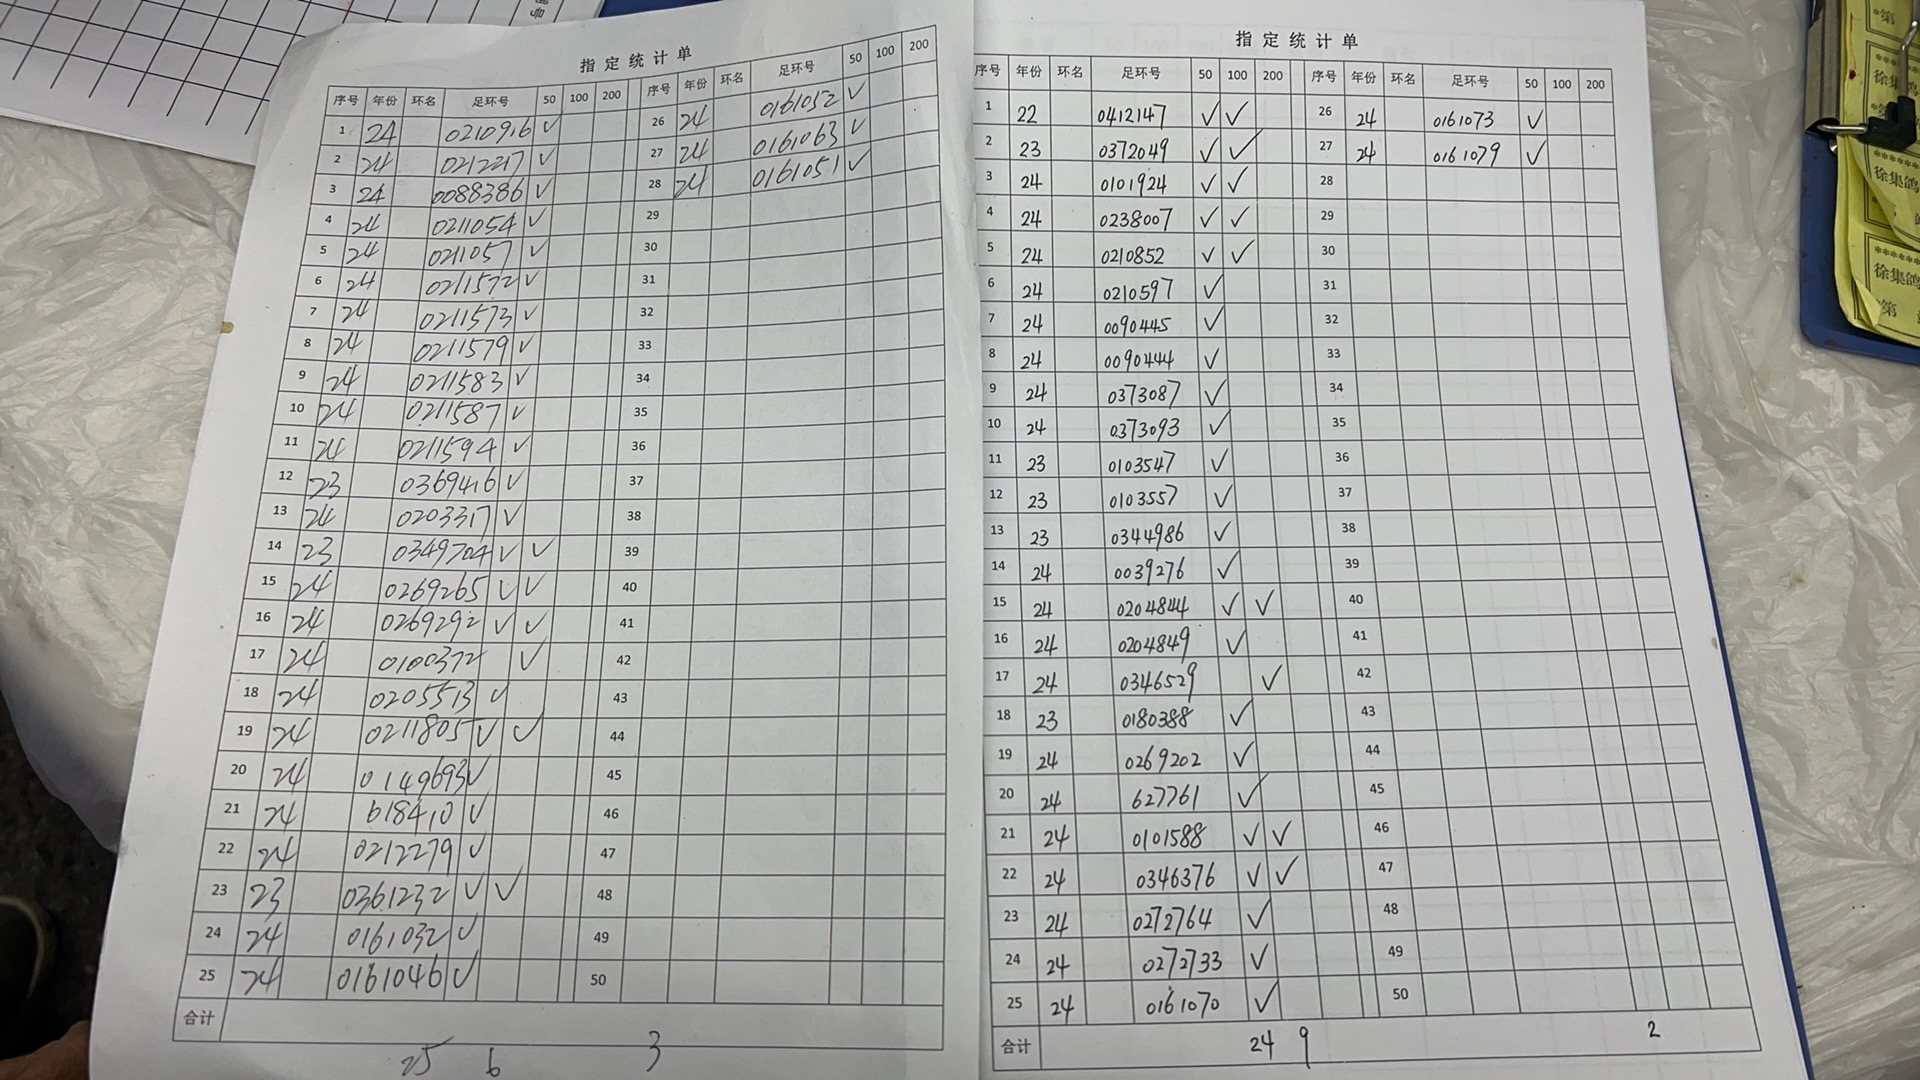 指定统计单
序号 年份 环名 足环号 50 100 200 序号 年份 环名 足环号 50 100 200
1 24 0210916 ✓ 26 24 0161052 ✓
2 24 0212217 ✓ 27 24 0161063 ✓
3 24 0088386 ✓ 28 24 0161051 ✓
4 24 0211054 ✓ 29
5 24 0211057 ✓ 30
6 24 0211572 ✓ 31
7 24 0211573 ✓ 32
8 24 0211579 ✓ 33
9 24 0211583 ✓ 34
10 24 0211587 ✓ 35
11 24 0211594 ✓ 36
12 23 0369416 ✓ 37
13 24 0203317 ✓ 38
14 23 0349704 ✓ ✓ 39
15 24 0269265 ✓ ✓ 40
16 24 0269292 ✓ ✓ 41
17 24 0100372 ✓ 42
18 24 0205513 ✓ 43
19 24 0211805 ✓ ✓ 44
20 24 0149693 ✓ 45
21 24 618410 ✓ 46
22 24 0212279 ✓ 47
23 23 0361232 ✓ ✓ 48
24 24 0161032 ✓ 49
25 24 0161046 ✓ 50
合计
25 6 3
指定统计单
序号 年份 环名 足环号 50 100 200 序号 年份 环名 足环号 50 100 200
1 22 0412147 ✓ ✓ 26 24 0161073 ✓
2 23 0372049 ✓ ✓ 27 24 0161079 ✓
3 24 0101924 ✓ ✓ 28
4 24 0238007 ✓ ✓ 29
5 24 0210852 ✓ ✓ 30
6 24 0210597 ✓ 31
7 24 0090445 ✓ 32
8 24 0090444 ✓ 33
9 24 0373087 ✓ 34
10 24 0373093 ✓ 35
11 23 0103547 ✓ 36
12 23 0103557 ✓ 37
13 23 0344986 ✓ 38
14 24 0039276 ✓ 39
15 24 0204844 ✓ ✓ 40
16 24 0204849 ✓ 41
17 24 0346529 ✓ 42
18 23 0180388 ✓ 43
19 24 0269202 ✓ 44
20 24 627761 ✓ 45
21 24 0101588 ✓ ✓ 46
22 24 0346376 ✓ ✓ 47
23 24 0272764 ✓ 48
24 24 0272733 ✓ 49
25 24 0161070 ✓ 50
合计 24 9 2
*第
******
徐集鸽
******
徐集鸽
******
徐集鸽
*第